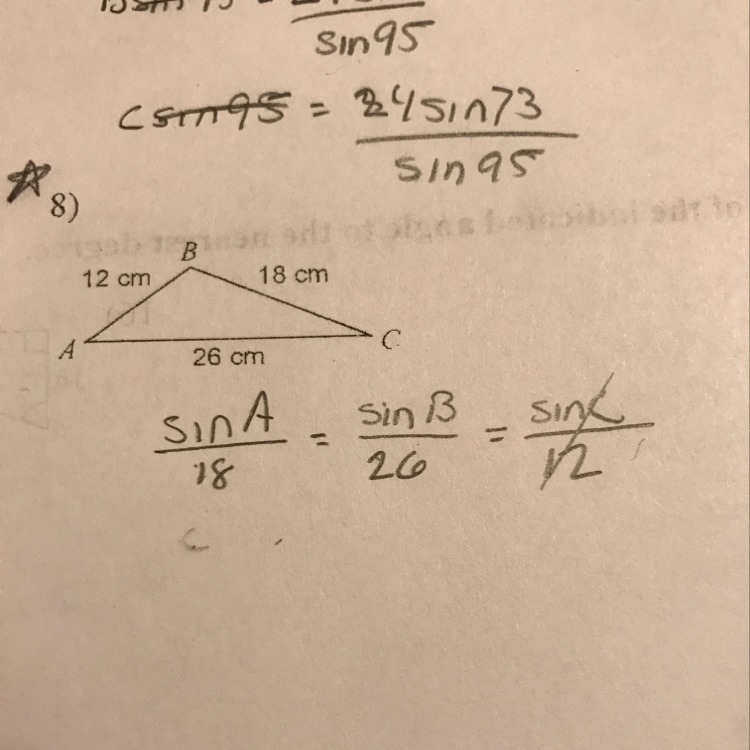 sin95
csin95 = 24sin73
sin95
8)
B
12 cm 18 cm
A C
26 cm
sinA = sinB = sinC
18 26 12